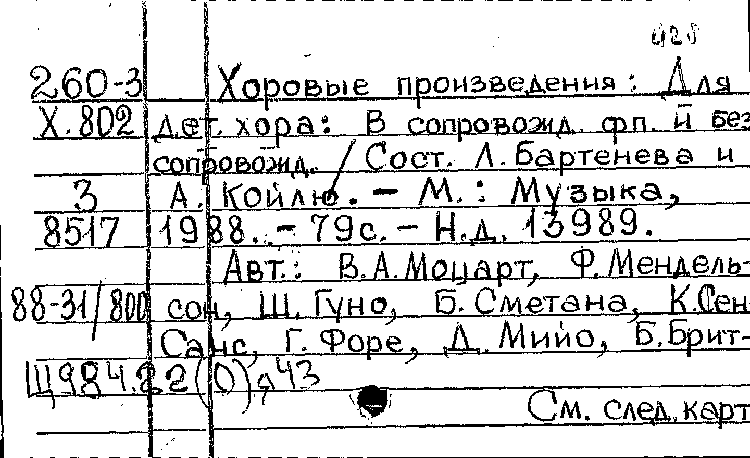 028
260-3 Хоровые произведения: Для
Х.802 дет. хора: В сопровожд. фп. и без
сопровожд. / Сост. Л. Бартенева и
3 А. Койлю. – М.: Музыка,
8517 1988. – 79с. – Н.д. 13989.
Авт.: В.А.Моцарт, Ф.Мендель-
88-31/800 сон, Ш. Гуно, Б. Сметана, К.Сен
Санс, Г. Форе, Д. Мийо, Б.Брит-
Щ984.22(0)я43
См. след. карт